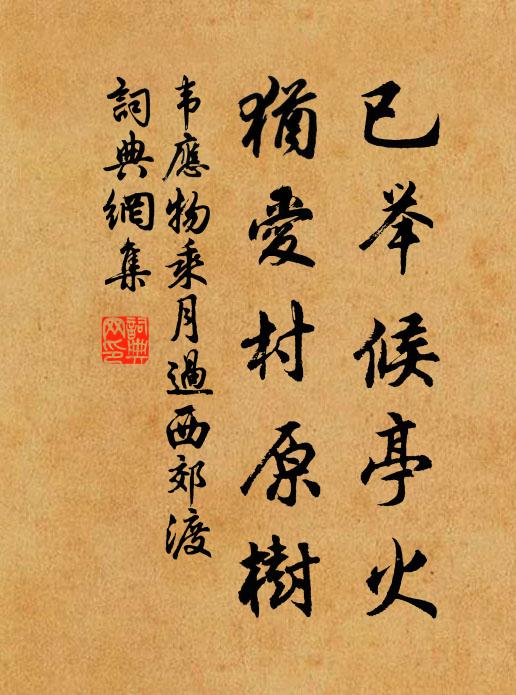 已举候亭火
猶愛村原樹
韦應物乘月過西郊渡
詞典網集
詞典网印